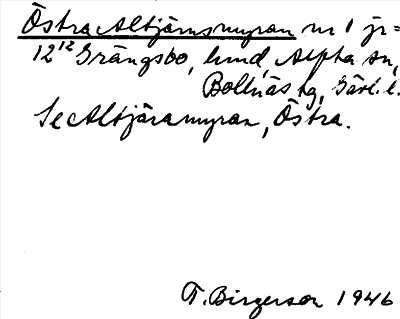 Östra Altjärnsmyran nr 1 jr=
12¹² Grängsbo, lund, Alpha sn,
Bollnäs tg, Gävl. l.
Se Altjäramyran, Östra.
T. Birgerson 1946